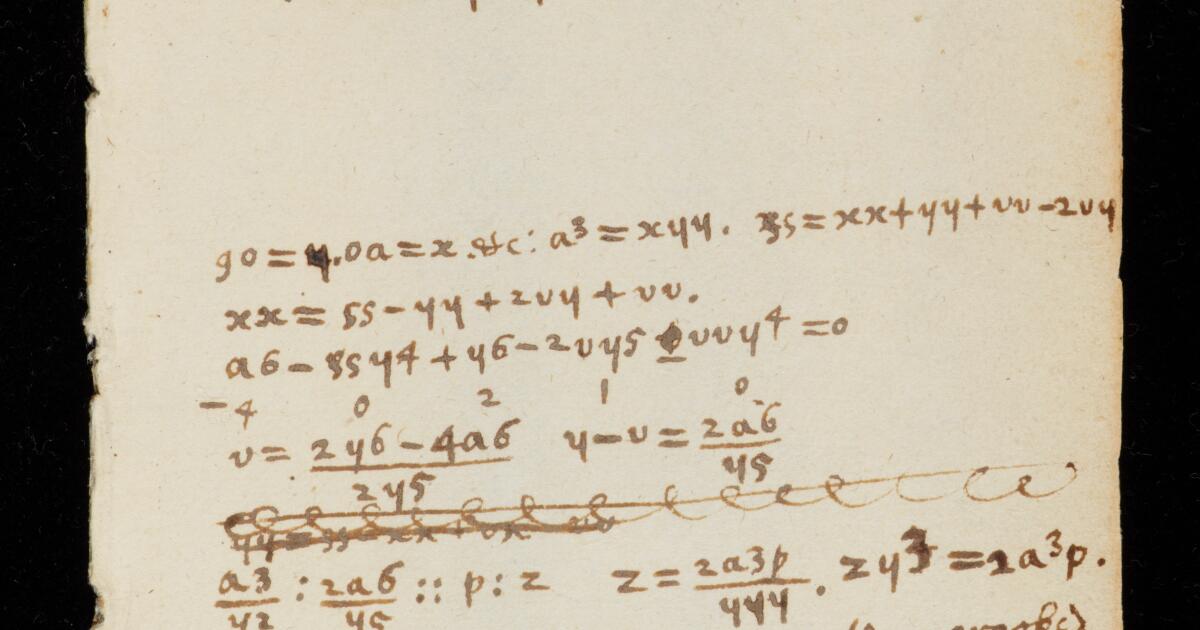 go = y. oa = x. &c: a³ = xyy. ss = xx + yy + vv - 2vy
xx = ss - yy + 2vy + vv.
a6 - ssy4 + y6 - 2vy5 + vvy4 = 0
-4 0 2 1 0
v = 2y6 - 4a6 / 2y5 y - v = 2a6 / y5
a3/y2 : 2a6/y5 :: p : z z = 2a3p / yyy . zy³ = 2a³p.